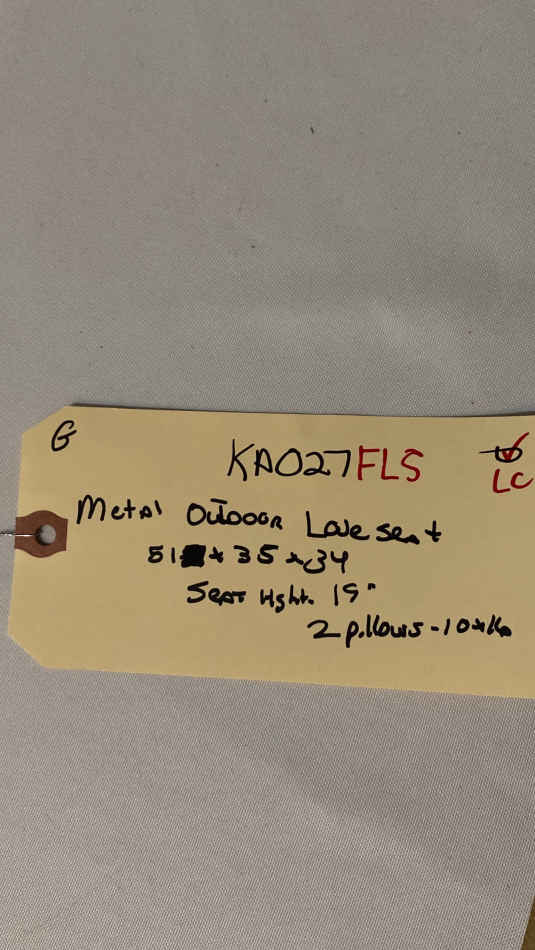 G
KA027FLS
LC
Metal Outdoor Loveseat
51 x 35 x 34
Seat Hght. 19"
2 pillows - 10x16